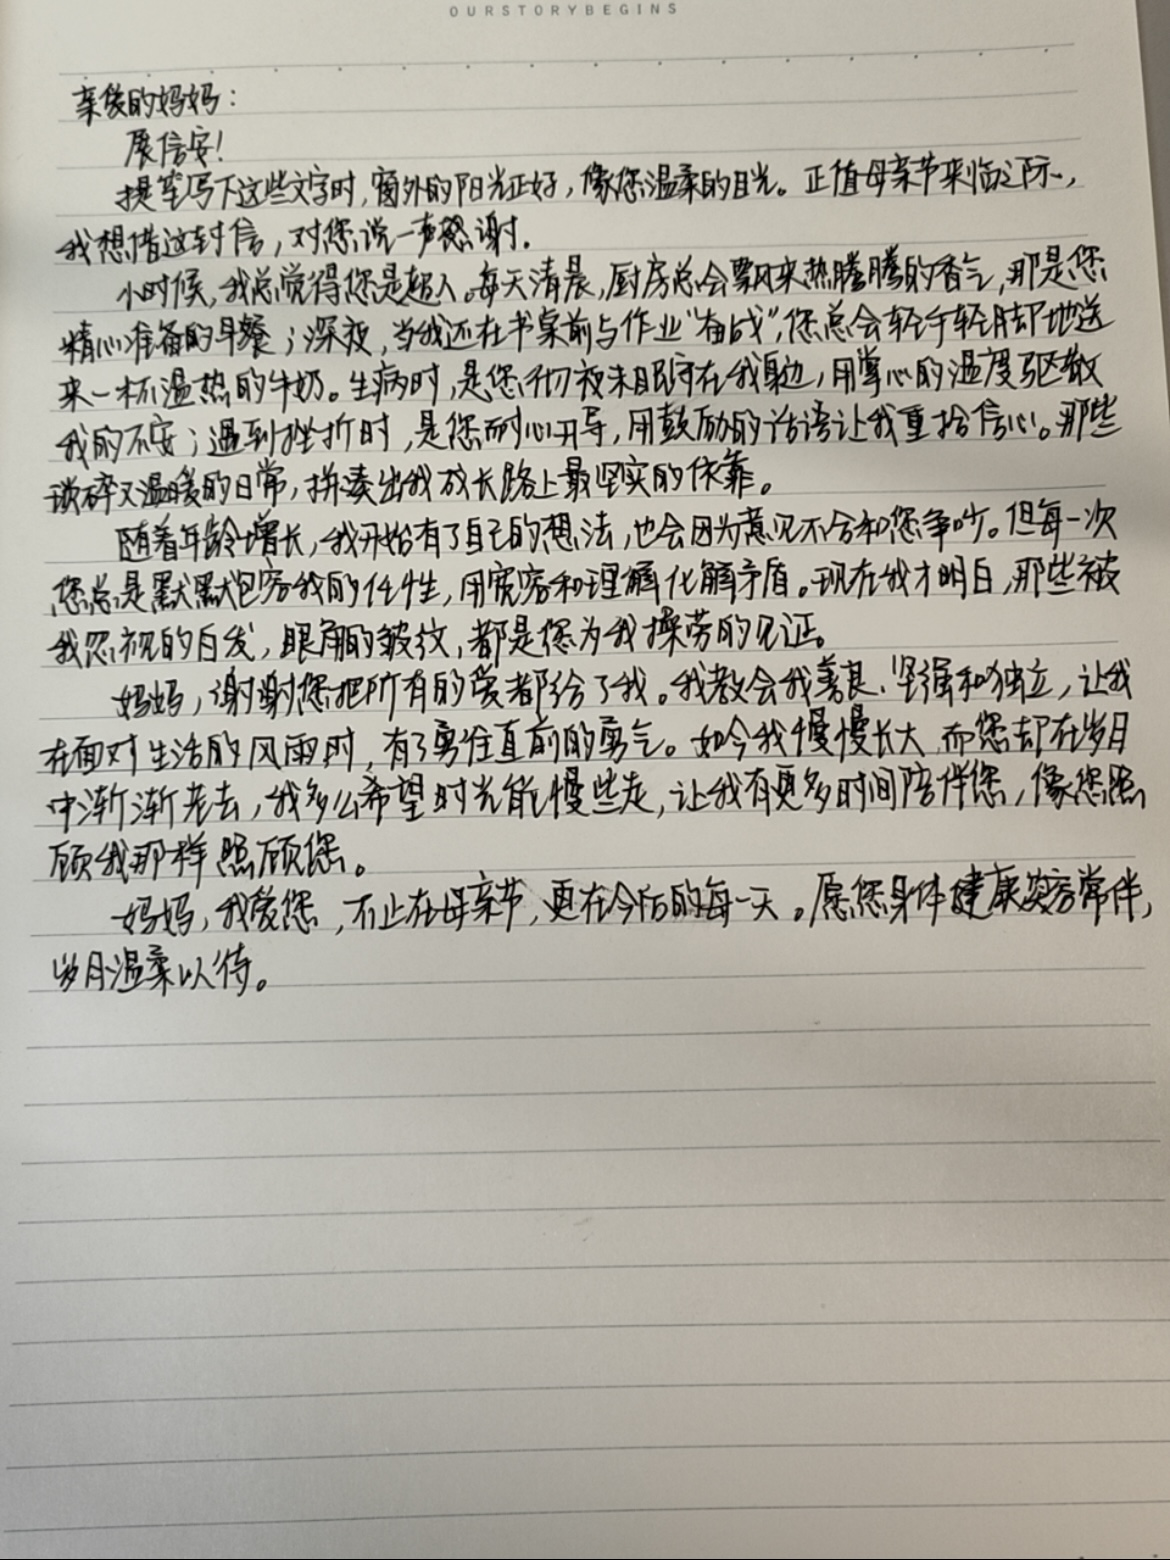 OURSTORYBEGINS
亲爱的妈妈：
展信安！
提笔写下这些文字时，窗外的阳光正好，像您温柔的目光。正值母亲节来临之际，
我想借这封信，对您说一声感谢．
小时候，我总觉得您是超人。每天清晨，厨房总会飘来热腾腾的香气，那是您
精心准备的早餐；深夜，当我还在书桌前与作业“奋战”，您总会轻手轻脚地送
来一杯温热的牛奶。生病时，是您彻夜未眠守在我身边，用掌心的温度驱散
我的不安；遇到挫折时，是您耐心开导，用鼓励的话语让我重拾信心。那些
琐碎又温暖的日常，拼凑出我成长路上最坚实的依靠。
随着年龄增长，我开始有了自己的想法，也会因为意见不合和您争吵。但每一次
您总是默默包容我的任性，用宽容和理解化解矛盾。现在我才明白，那些被
我忽视的白发，眼角的皱纹，都是您为我操劳的见证。
妈妈，谢谢您把所有的爱都给了我。我教会我善良、坚强和独立，让我
在面对生活的风雨时，有了勇往直前的勇气。如今我慢慢长大，而您却在岁月
中渐渐老去，我多么希望时光能慢些走，让我有更多时间陪伴您，像您照
顾我那样照顾您。
妈妈，我爱您，不止在母亲节，更在今后的每一天。愿您身体健康笑容常伴，
岁月温柔以待。